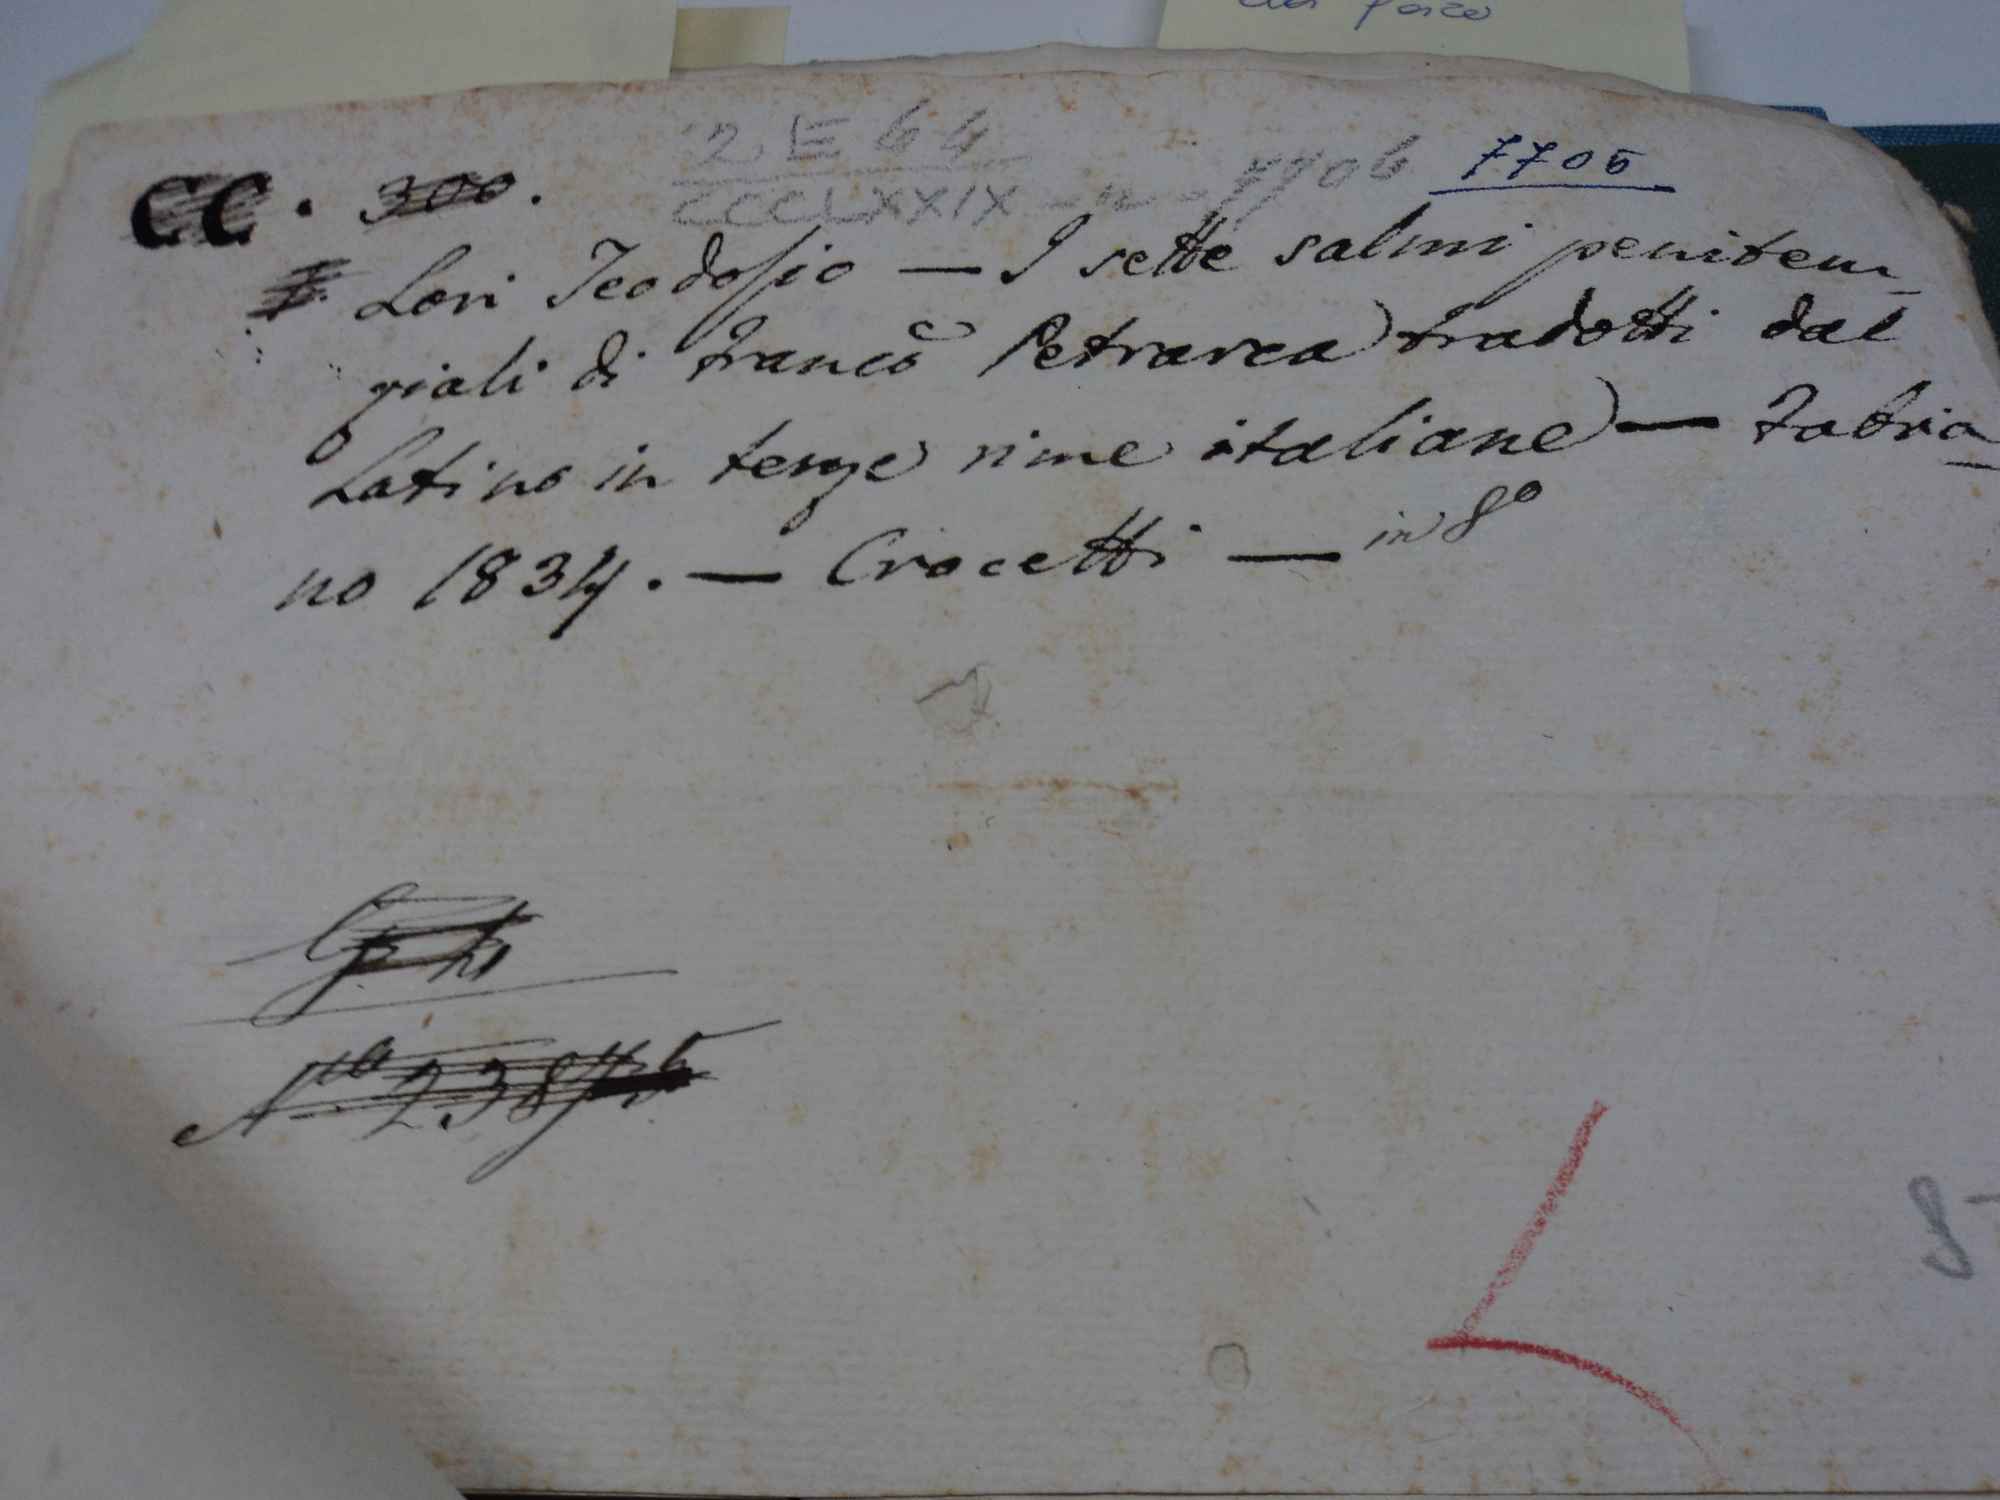 del forzo
2 E 64 7705
CC. 300. CCCLXXIX - n - 7706
Lori Teodosio — I sette salmi peniten_
ziali di Franc̃o Petrarca tradotti dal
Latino in terze rime italiane — Fabria_
no 1834. — Crocetti — in 8º
8